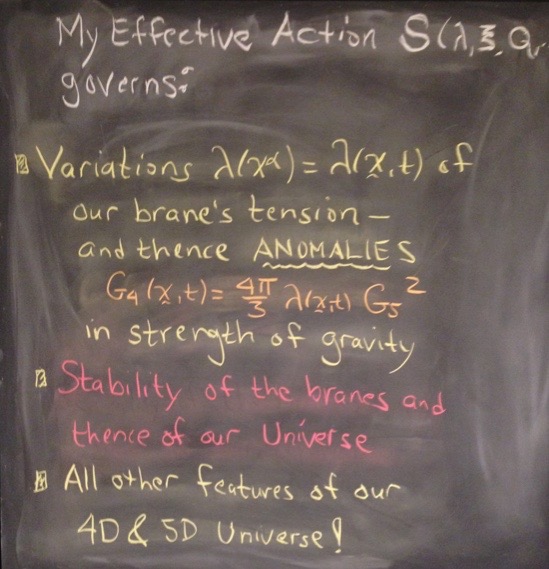 My Effective Action S(λ, ξ, Q,
governs:
Variations λ(x^α) = λ(x, t) of
our brane's tension —
and thence ANOMALIES
G₄(x,t) = 4π/3 λ(x,t) G₅²
in strength of gravity
Stability of the branes and
thence of our Universe
All other features of our
4D & 5D Universe!